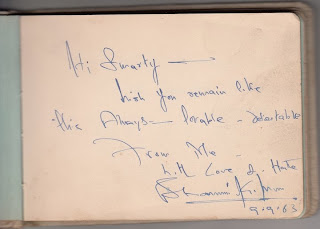 Hi Smarty —
Wish you remain like
this Always — lovable —
From Me —
with Love & Hate
9.9.63